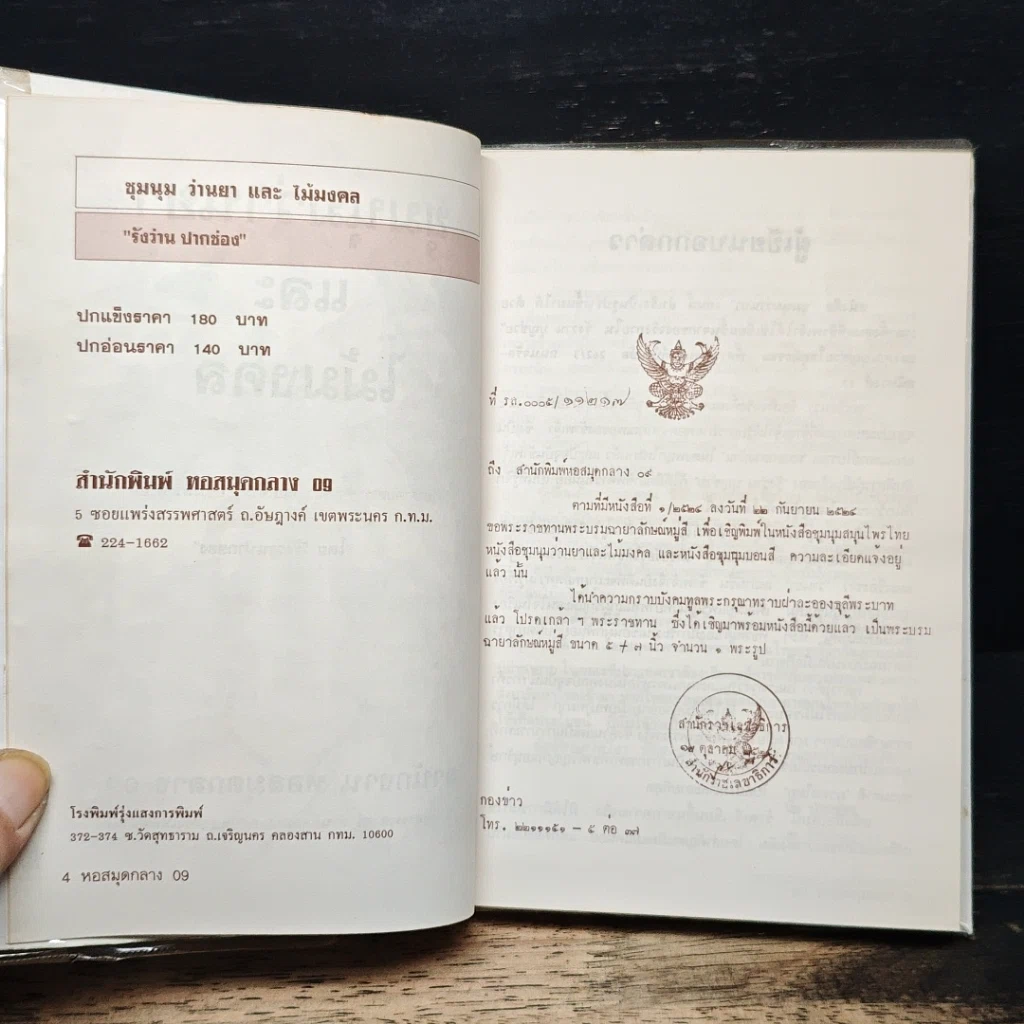 ชุมนุม ว่านยา และ ไม้มงคล
"รังว่าน ปากช่อง"
ปกแข็งราคา 180 บาท
ปกอ่อนราคา 140 บาท
สำนักพิมพ์ หอสมุดกลาง 09
5 ซอยแพร่งสรรพศาสตร์ ถ.อัษฎางค์ เขตพระนคร ก.ท.ม.
☎ 224-1662
โรงพิมพ์รุ่งแสงการพิมพ์
372-374 ซ.วัดสุทธาราม ถ.เจริญนคร คลองสาน กทม. 10600
4 หอสมุดกลาง 09
ที่ รล.๐๐๐๕/๑๑๒๑๗
ถึง สำนักพิมพ์หอสมุดกลาง ๐๙
ตามที่มีหนังสือที่ ๑/๒๕๒๔ ลงวันที่ ๒๒ กันยายน ๒๕๒๔
ขอพระราชทานพระบรมฉายาลักษณ์หมู่สี เพื่อเชิญพิมพ์ในหนังสือชุมนุมสมุนไพรไทย
หนังสือชุมนุมว่านยาและไม้มงคล และหนังสือชุมนุมบอนสี ความละเอียดแจ้งอยู่
แล้ว นั้น
ได้นำความกราบบังคมทูลพระกรุณาทราบฝ่าละอองธุลีพระบาท
แล้ว โปรดเกล้า ฯ พระราชทาน ซึ่งได้เชิญมาพร้อมหนังสือนี้ด้วยแล้ว เป็นพระบรม
ฉายาลักษณ์หมู่สี ขนาด ๕ + ๗ นิ้ว จำนวน ๑ พระรูป
สำนักราชเลขาธิการ
ตุลาคม
สำนักราชเลขาธิการ
กองข่าว
โทร. ๒๒๑๑๑๕๑ - ๕ ต่อ ๓๗